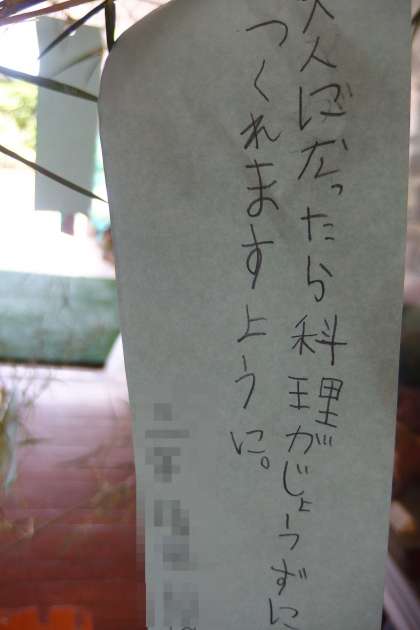 大人になったら料理がじょうずに
つくれますように。